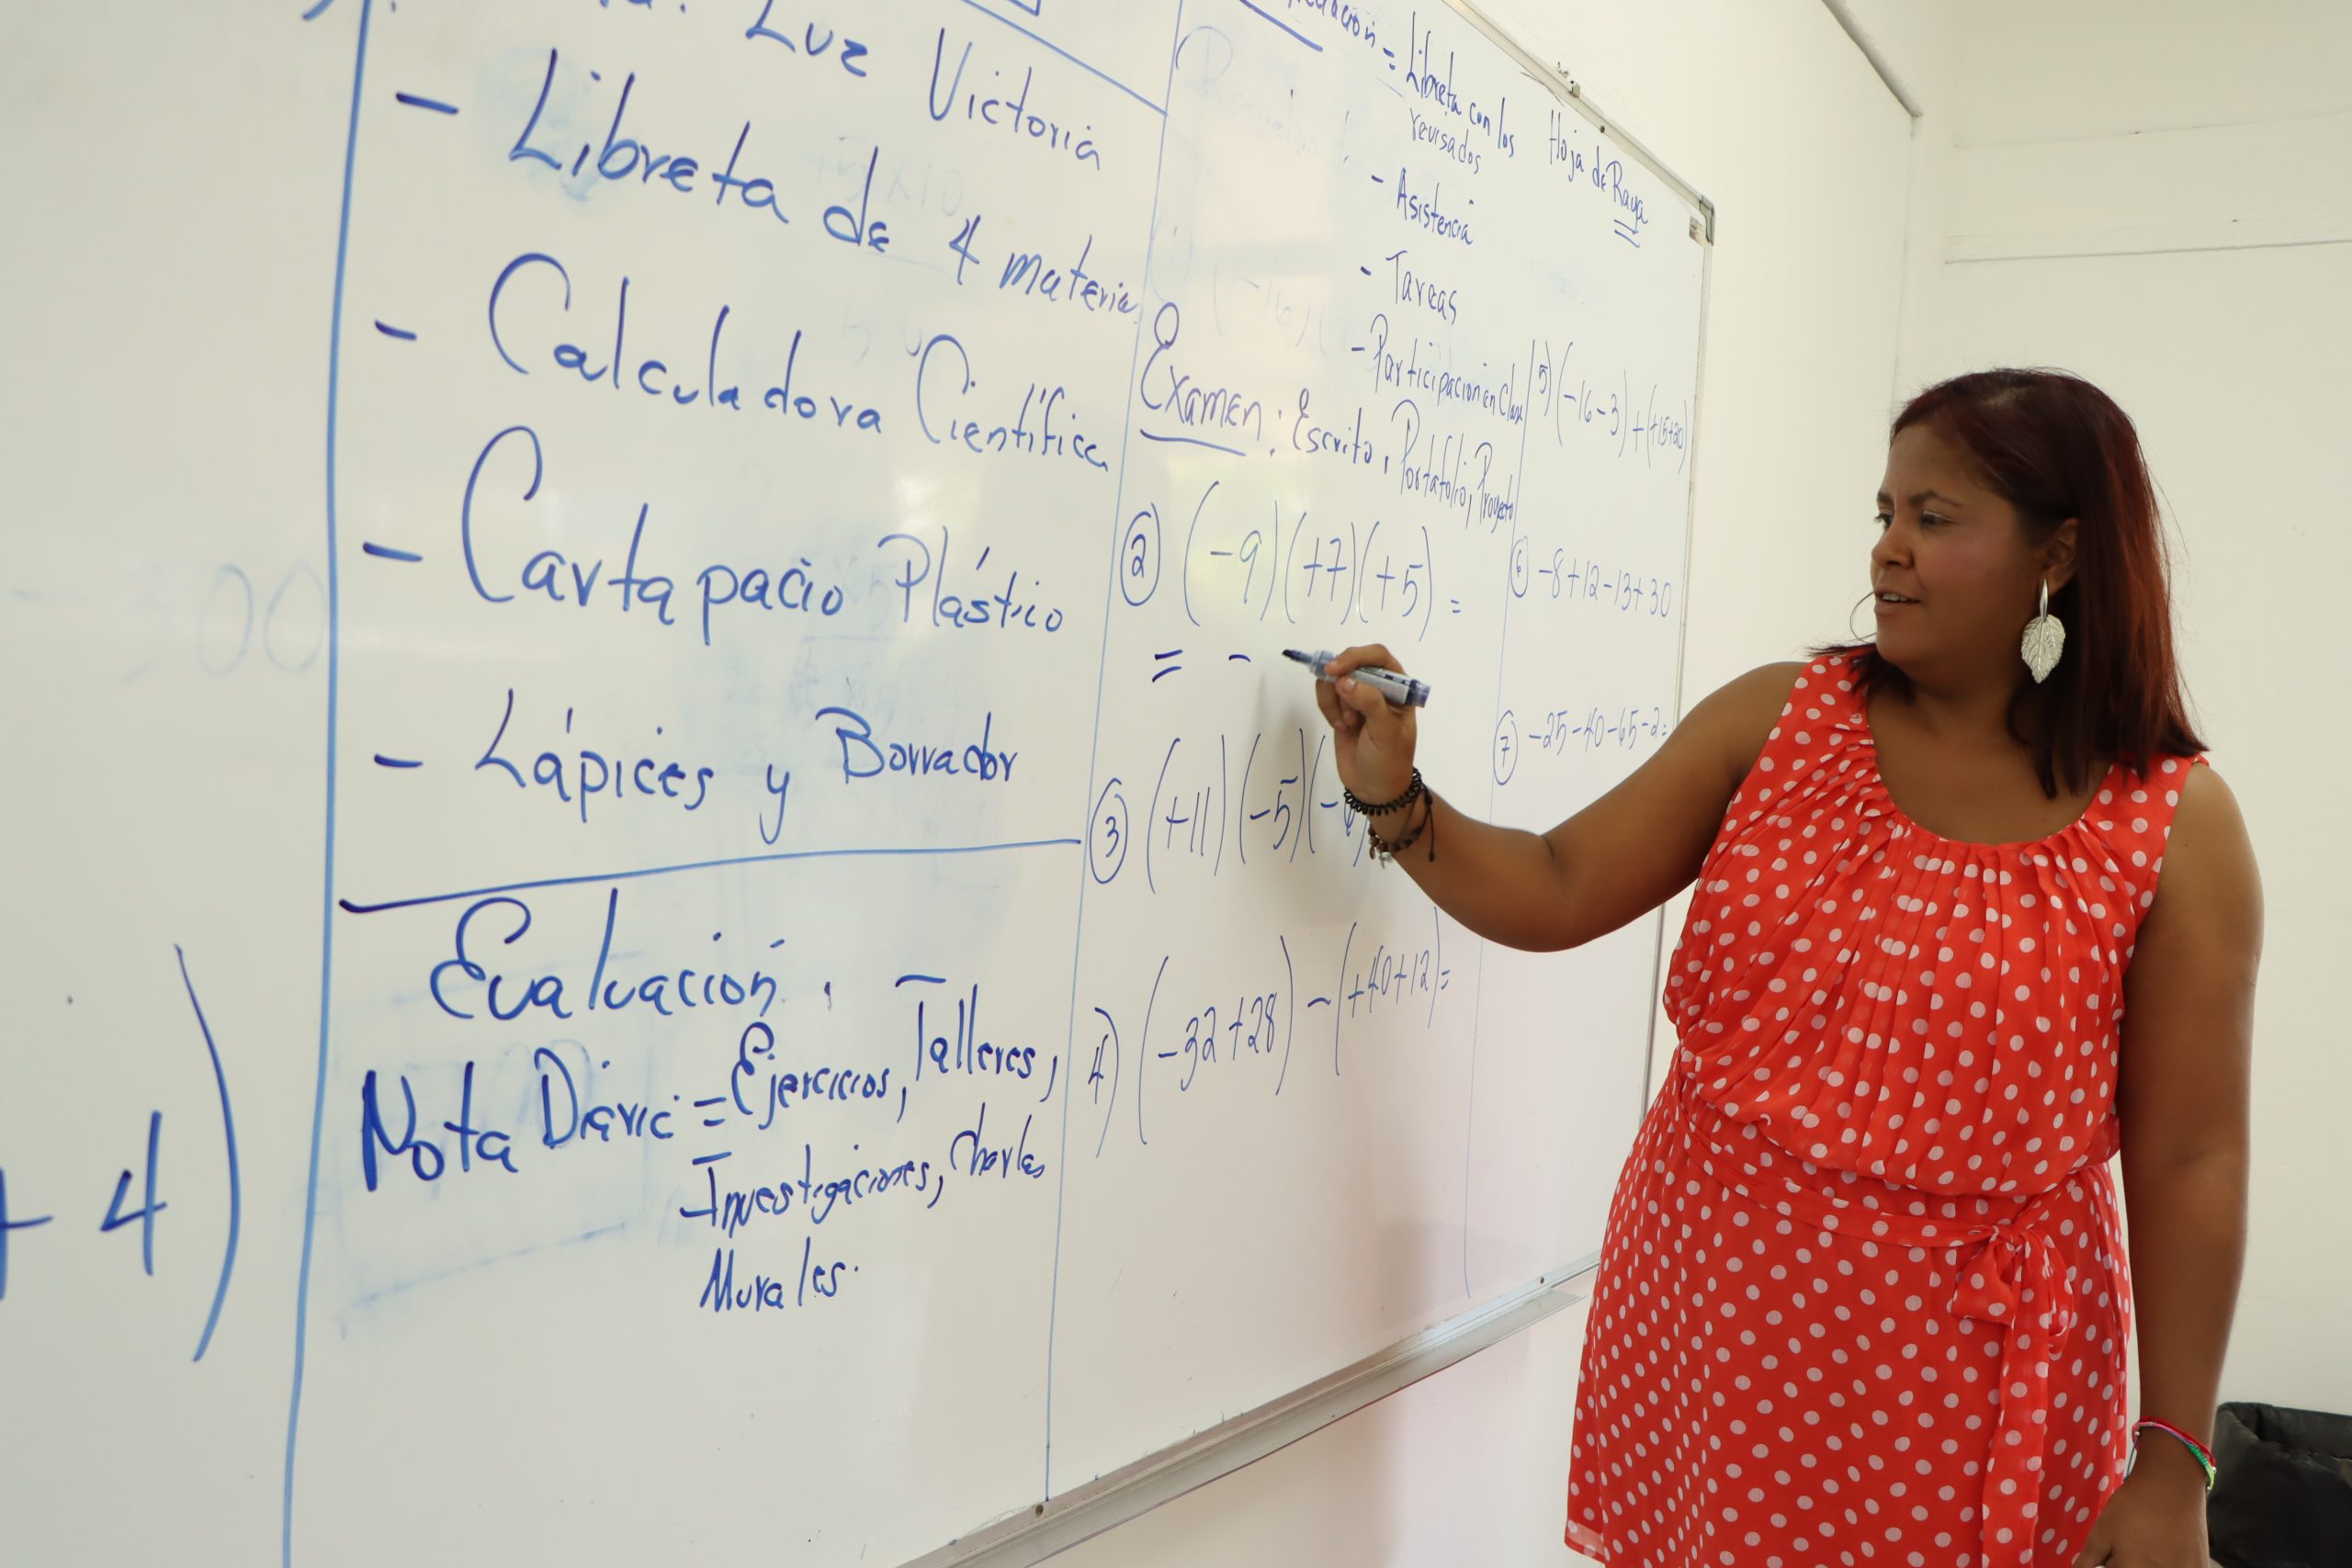 Luz Victoria
- Libreta de 4 materia
- Calculadora Científica
- Cartapacio Plástico
- Lápices y Borrador
Evaluación:
Nota Diaria = Ejercicios, Talleres,
Investigaciones, Charlas
Murales.
+ 4)
= Libreta con los
revisados
Hoja de Raya
- Asistencia
- Tareas
- Participación en Clase
Examen: Escrito, Portafolio, Proyecto
② (-9)(+7)(+5) =
= -
③ (+11)(-5)(-
4) (-32+28) - (+40+12) =
5) (-16-3) + (+15+20)
⑥ -8+12-13+30
⑦ -25-40-65-2=